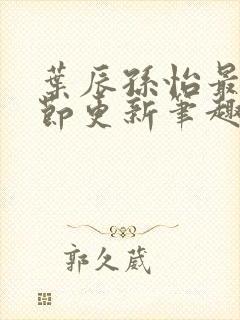 葉辰孫怡最
節更新筆趣
郭久葳